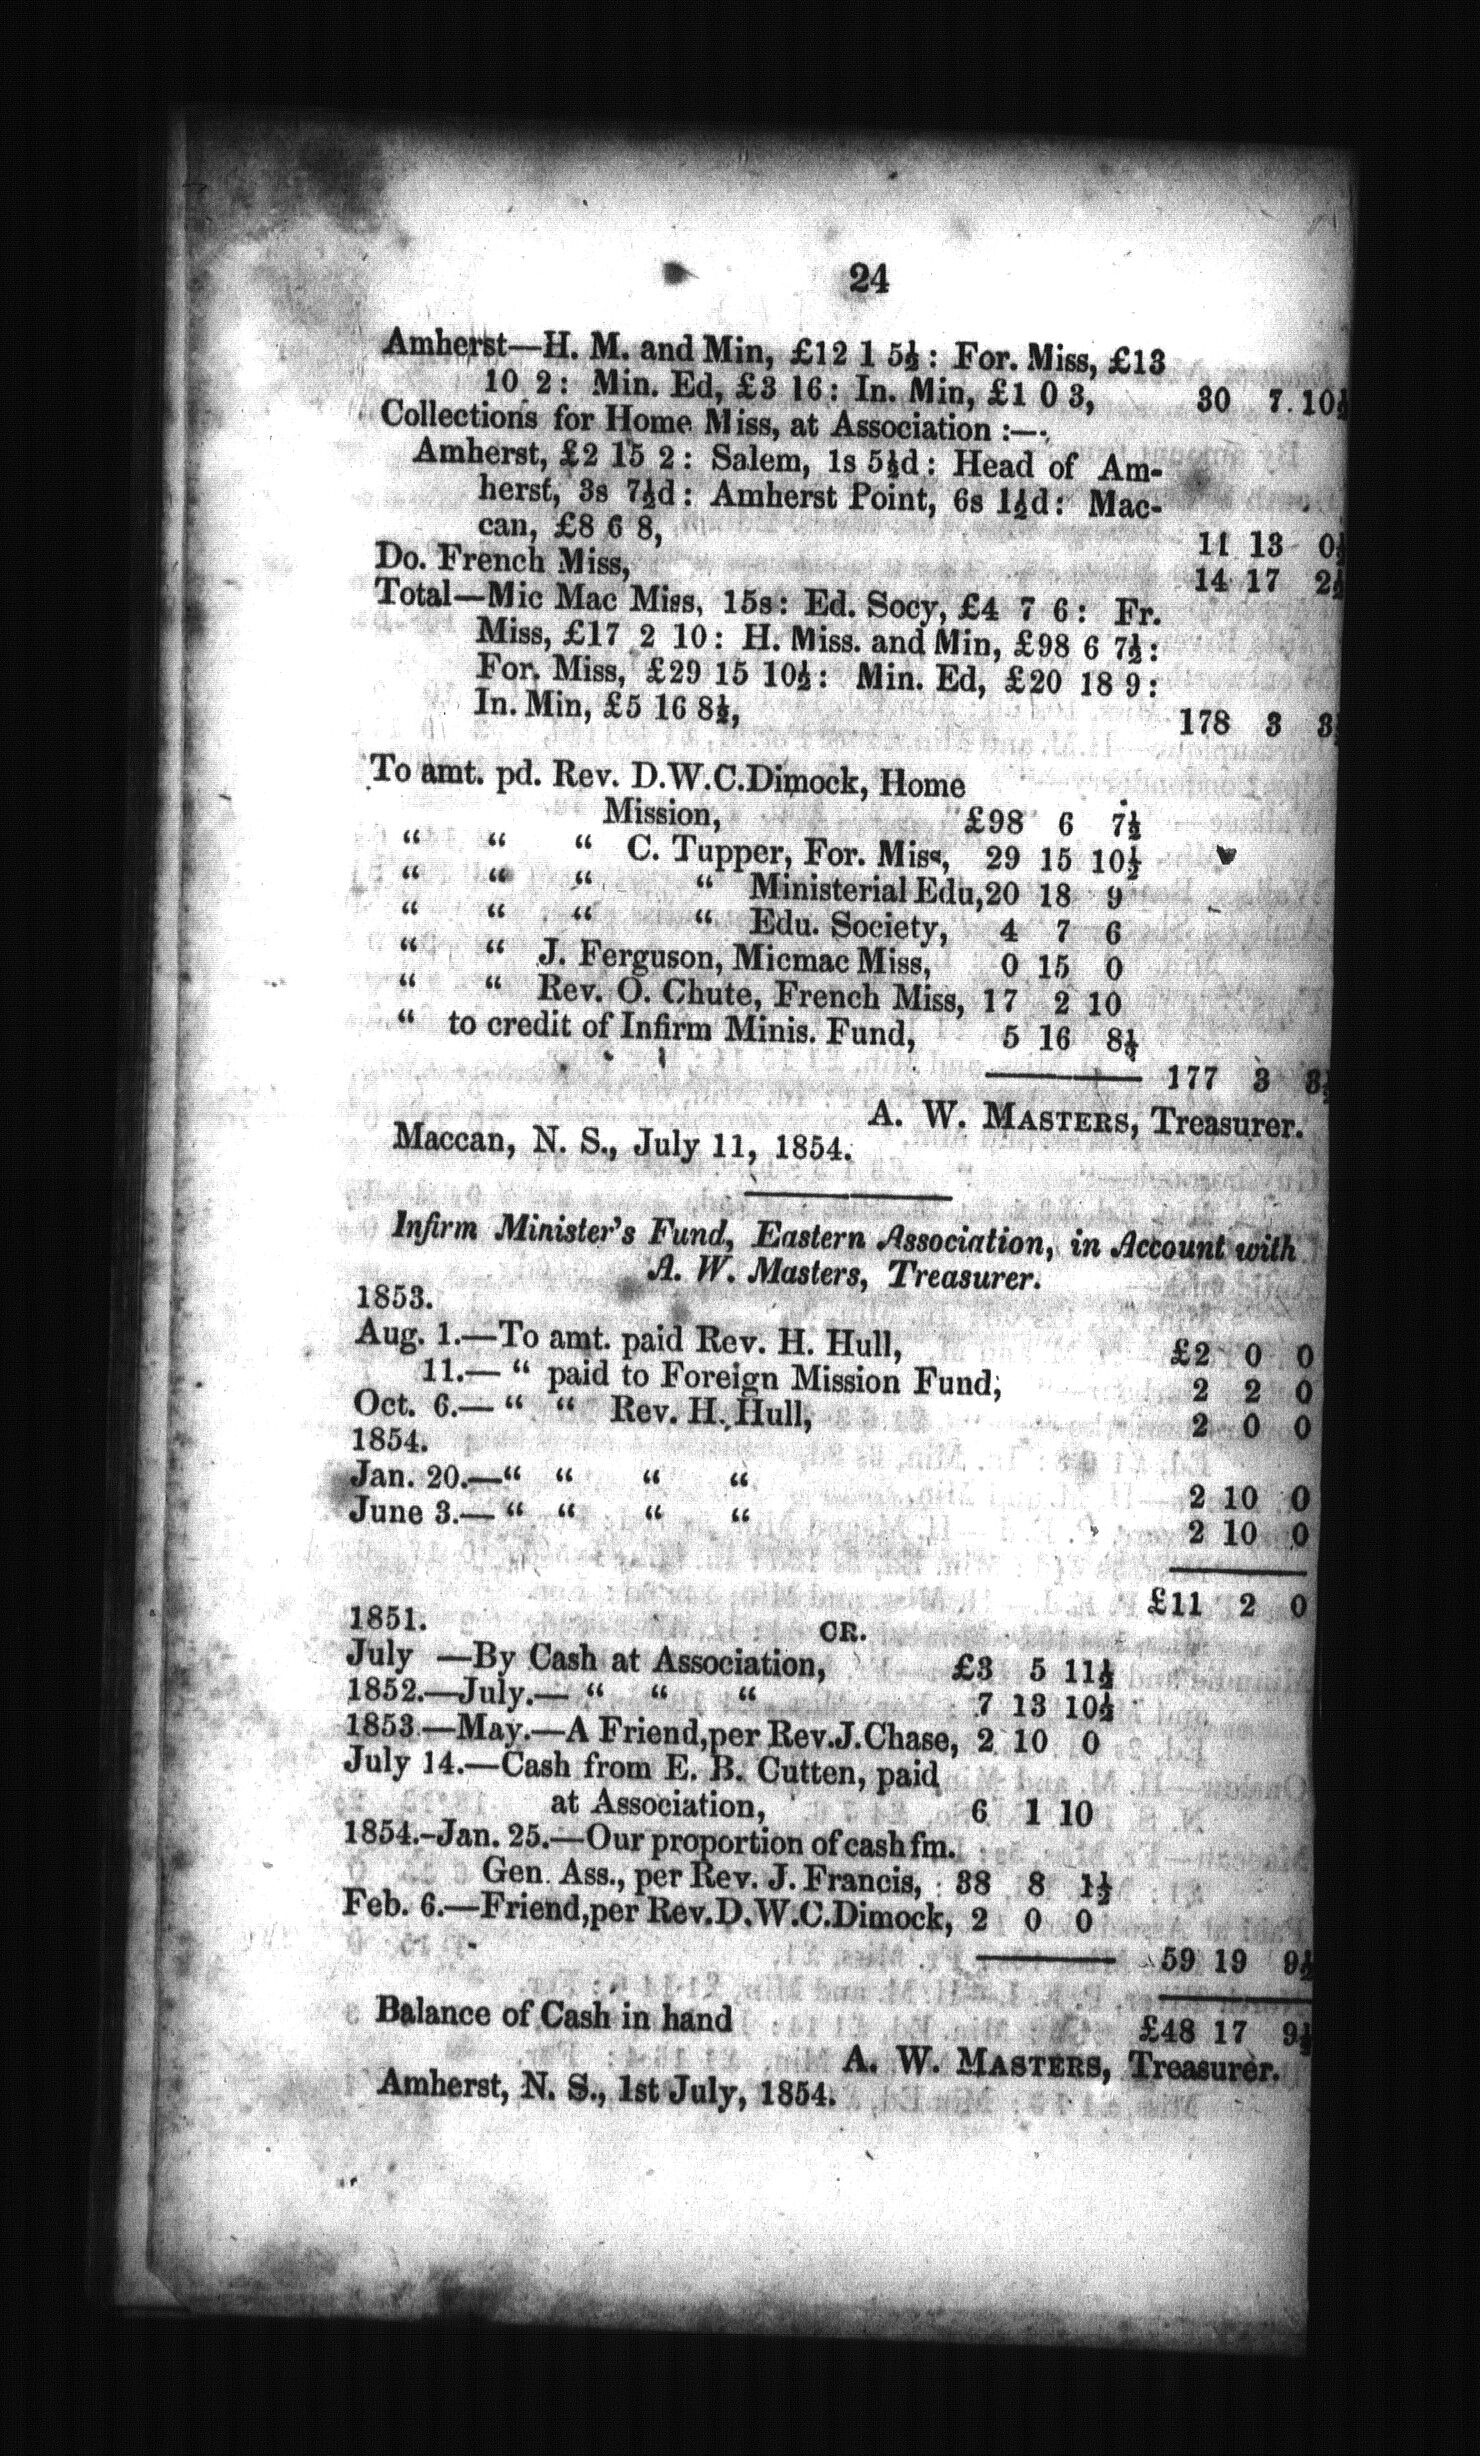 24
Amherst—H. M. and Min, £12 1 5½ : For. Miss, £13
10 2 : Min. Ed, £3 16 : In. Min, £1 0 3, 30 7 10½
Collections for Home Miss, at Association :—
Amherst, £2 15 2 : Salem, 1s 5½d : Head of Am-
herst, 3s 7½d : Amherst Point, 6s 1½d : Mac-
can, £8 6 8, 11 13 0½
Do. French Miss, 14 17 2½
Total—Mic Mac Miss, 15s : Ed. Socy, £4 7 6 : Fr.
Miss, £17 2 10 : H. Miss. and Min, £98 6 7½ :
For. Miss, £29 15 10½ : Min. Ed, £20 18 9 :
In. Min, £5 16 8½, 178 3 3½
To amt. pd. Rev. D.W.C.Dimock, Home
Mission, £98 6 7½
“ “ “ C. Tupper, For. Miss, 29 15 10½
“ “ “ “ Ministerial Edu, 20 18 9
“ “ “ “ Edu. Society, 4 7 6
“ “ J. Ferguson, Micmac Miss, 0 15 0
“ “ Rev. O. Chute, French Miss, 17 2 10
“ to credit of Infirm Minis. Fund, 5 16 8½
177 3 3½
A. W. MASTERS, Treasurer.
Maccan, N. S., July 11, 1854.
Infirm Minister's Fund, Eastern Association, in Account with
A. W. Masters, Treasurer.
1853.
Aug. 1.—To amt. paid Rev. H. Hull, £2 0 0
11.— “ paid to Foreign Mission Fund, 2 2 0
Oct. 6.— “ “ Rev. H. Hull, 2 0 0
1854.
Jan. 20.—“ “ “ “ 2 10 0
June 3.— “ “ “ “ 2 10 0
£11 2 0
1851. CR.
July —By Cash at Association, £3 5 11½
1852.—July.— “ “ “ 7 13 10½
1853.—May.—A Friend,per Rev.J.Chase, 2 10 0
July 14.—Cash from E. B. Cutten, paid
at Association, 6 1 10
1854.-Jan. 25.—Our proportion of cash fm.
Gen. Ass., per Rev. J. Francis, 38 8 1½
Feb. 6.—Friend,per Rev.D.W.C.Dimock, 2 0 0
59 19 9½
Balance of Cash in hand £48 17 9½
A. W. MASTERS, Treasurer.
Amherst, N. S., 1st July, 1854.